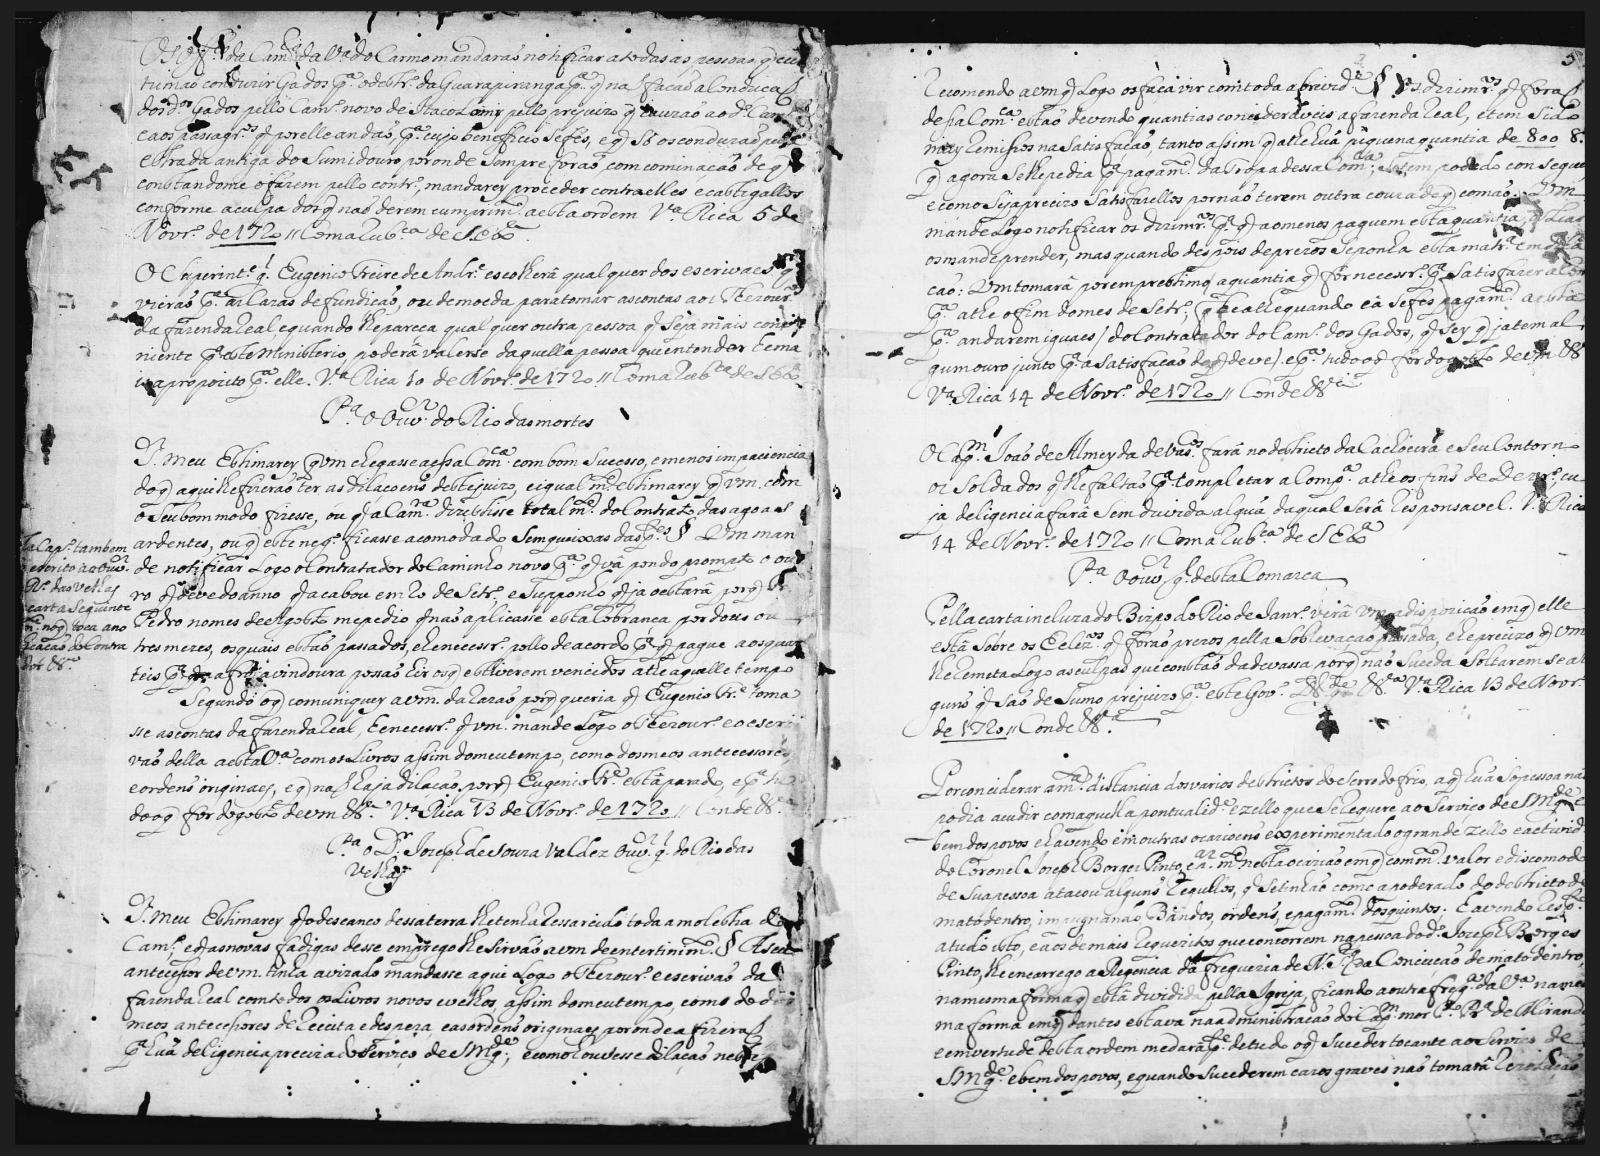 Os off.es da Cam.ra da V.a do Carmo mandarão notificar a todas as pessoas q cos
tumão conduzir Gados p.a o destr.o da Guarapiranga p.a q não fação a conduçã
dos d.os Gados pello Cam.o novo de Itacolomi pello prejuizo q cauzão ao d.o Cam.o
e aos passagr.os q por elle andão, p.a cujo beneficio se fes, e q só os conduzão pella
estrada antiga do Sumidouro, por onde sempre forão, com cominação de q
constandome o fazem pello contr.o, mandarey proceder contra elles e castigallos
conforme a culpa dos q não derem cumprim.to a esta ordem V.a Rica 5 de
Novr.o de 1720 // Com a rub.ca de S. Ex.a
O Superint.e g.l Eugenio Freire de Andr.e escolherá qual quer dos escrivaes q
vierão p.a as Cazas de fundição, ou de moeda para tomar as contas aos Thezour.os
da fazenda Real, e quando lhe pareça qual quer outra pessoa q seja mais conve
niente p.a este Ministerio, poderá valerse daquella pessoa que entender tem a
mais proposito p.a elle. V.a Rica 10 de Novr.o de 1720 // Com a rub.ca de S Ex.a
P.a o Ouv.or do Rio das mortes
S.r meu Estimarey q Vm chegasse a essa Com.ca com bom sucesso, e menos impaciencia
do q aqui lhe fizerão ter as dilaçoens deste juizo, e igualm.te estimarey q Vm. com
o seu bom modo fizesse, ou q a Cam.ra dezistisse total m.te do Contrato das agoas
ardentes, ou q este neg.o ficasse acomodado sem queixas das p.tes § Vm man
de notificar Logo o Contratador do Caminho novo p.a q vá pondo prompto o ou
ro q deve do anno q acabou em 20 de Setr.o e supponho q ja estará porq
Pedro nomes de Agosto me pedio q não aplicasse esta cobrança por dous ou
tres mezes, os quais estão passados, e he necessr.o pello de acordo p.a q pague aos quar
teis p.a q a frota vindoura possão hir os q estiverem vencidos athe aquelle tempo
Segundo o q comuniquey a Vm. da razão porq queria q Eugenio Fr.e toma
sse as contas da fazenda Real, he necessr.o q Vm. mande Logo o Thezour.o e o escri
vão della a esta V.a com os Livros assim do meu tempo, como dos meos antecessores
e ordens originaes, e q não haja dilação, porq Eugenio Fr.e está parado, e p.a tu
do o q for do gosto de Vm Ds g.e V.a Rica 13 de Novr.o de 1720 // Conde
P.a o D.r Joseph de Souza Valdez Ouv.or g.l do Rio das
Velhas
S.r meu Estimarey q o descanço dessa terra lhe tenha ressarcido toda a molestia do
Cam.o, e q as novas fadigas desse emprego lhe sirvão a Vm de entertinim.to § A seu
antecessor de Vm. tinha avizado mandasse aqui Logo o Thezour.o e escrivão da
fazenda Real com todos os Livros novos e velhos, assim do meu tempo, como do dos
meos antecessores de Receita e despeza, e as ordens originaes, por onde a fizerão
p.a hũa deligencia precisa do Serviço de S Mg.de, e como houvesse dilação nesta
Esta Cap.a tambem
se escrito ao Ouv.or
do R.o das Velhas
carta seguinte
m.o no q toca ao no
tificação do Contra
dor
Recomendo a Vm q Logo os faça vir com toda a brevid.e § Os dizimr.os q forão
dessa Com.ca estão devendo quantias consideraveis a fazenda Real, e tem sido
muy remissos na satisfação, tanto assim q athe hũa piquena quantia de 800 8.as
q agora se lhe pedia p.a pagam.to da tropa dessa Com.ca, se tem podido conseguir
e como seja precizo satisfazellos por não terem outra couza de q comão. Vm
mande Logo notificar os dizimr.os p.a q ao menos paguem esta quantia, q
os mande prender, mas quando despois de prezos se ponha esta mat.ra em dila
ção: Vm tomará por emprestimo a quantia q for necessr.a p.a satisfazer a Com
p.a athe o fim do mes de Setr.o, q he athe quando cá se fes pagam.to a esta
p.a andarem iguaes / do Contratador do Cam.o dos Gados, q sey q ja tem al
gum ouro junto p.a a satisfação do q deve) e p.a tudo o q for do gosto de Vm Ds
V.a Rica 14 de Novr.o de 1720 // Conde
O Cap.m João de Almeyda de Vas.os fará no destricto da Cachoeira e seu Contorn
os Soldados q lhe faltão p.a completar a Comp.a athe os fins de Dezr.o, cu
ja deligencia fará sem duvida algũa da qual será responsavel. V. Rica
14 de Novr.o de 1720 // Com a rub.ca de S Ex.a
P.a o Ouv.or g.l desta Comarca
Pella carta incluza do Bispo do Rio de Janr.o verá Vm a dispozição em q elle
está sobre os Eclez.os q forão prezos pella soblevação passada, e he precizo q Vm
lhe remeta Logo as culpas que constão da devassa porq não suceda soltarem se al
guns q são de sumo prejuizo p.a este Gov.o D.s g.de V.a Rica 13 de Novr.o
de 1720 // Conde
Por conciderar a m.ta distancia dos varios destrictos do Serro do frio, a q hũa só pessoa não
podia acudir com aquella pontualid.e e zello que se requere ao Serviço de S Mg.de e
bem dos povos e havendo em outras ocazioens experimentado o grande zello e activid.e
do Coronel Joseph Borges Pinto, e a m.ma nesta ocazião em q com m.to valor e discomodo
de sua pessoa atacou alguns regullos, q se tinhão como apoderado do destricto do
mato dentro, impugnando Bandos, ordens, e pagam.to dos quintos; E avendo resp.to
a tudo isto, e aos demais requezitos que concorrem na pessoa do d.o Joseph Borges
Pinto, lhe encarrego a Regencia da freguezia de N. Sr.a da Conceição do mato dentro,
na mesma forma q está dividida pella Igreja, ficando a outra freg.a da V.a na mes
ma forma em q dantes estava na administração do Cap.m mor P.o P.ra de Miranda
e em vertude desta ordem me dará p.te de tudo o q suceder tocante ao Serviço de
S Mg.de e bem dos povos, e quando sucederem cazos graves não tomará rezolução